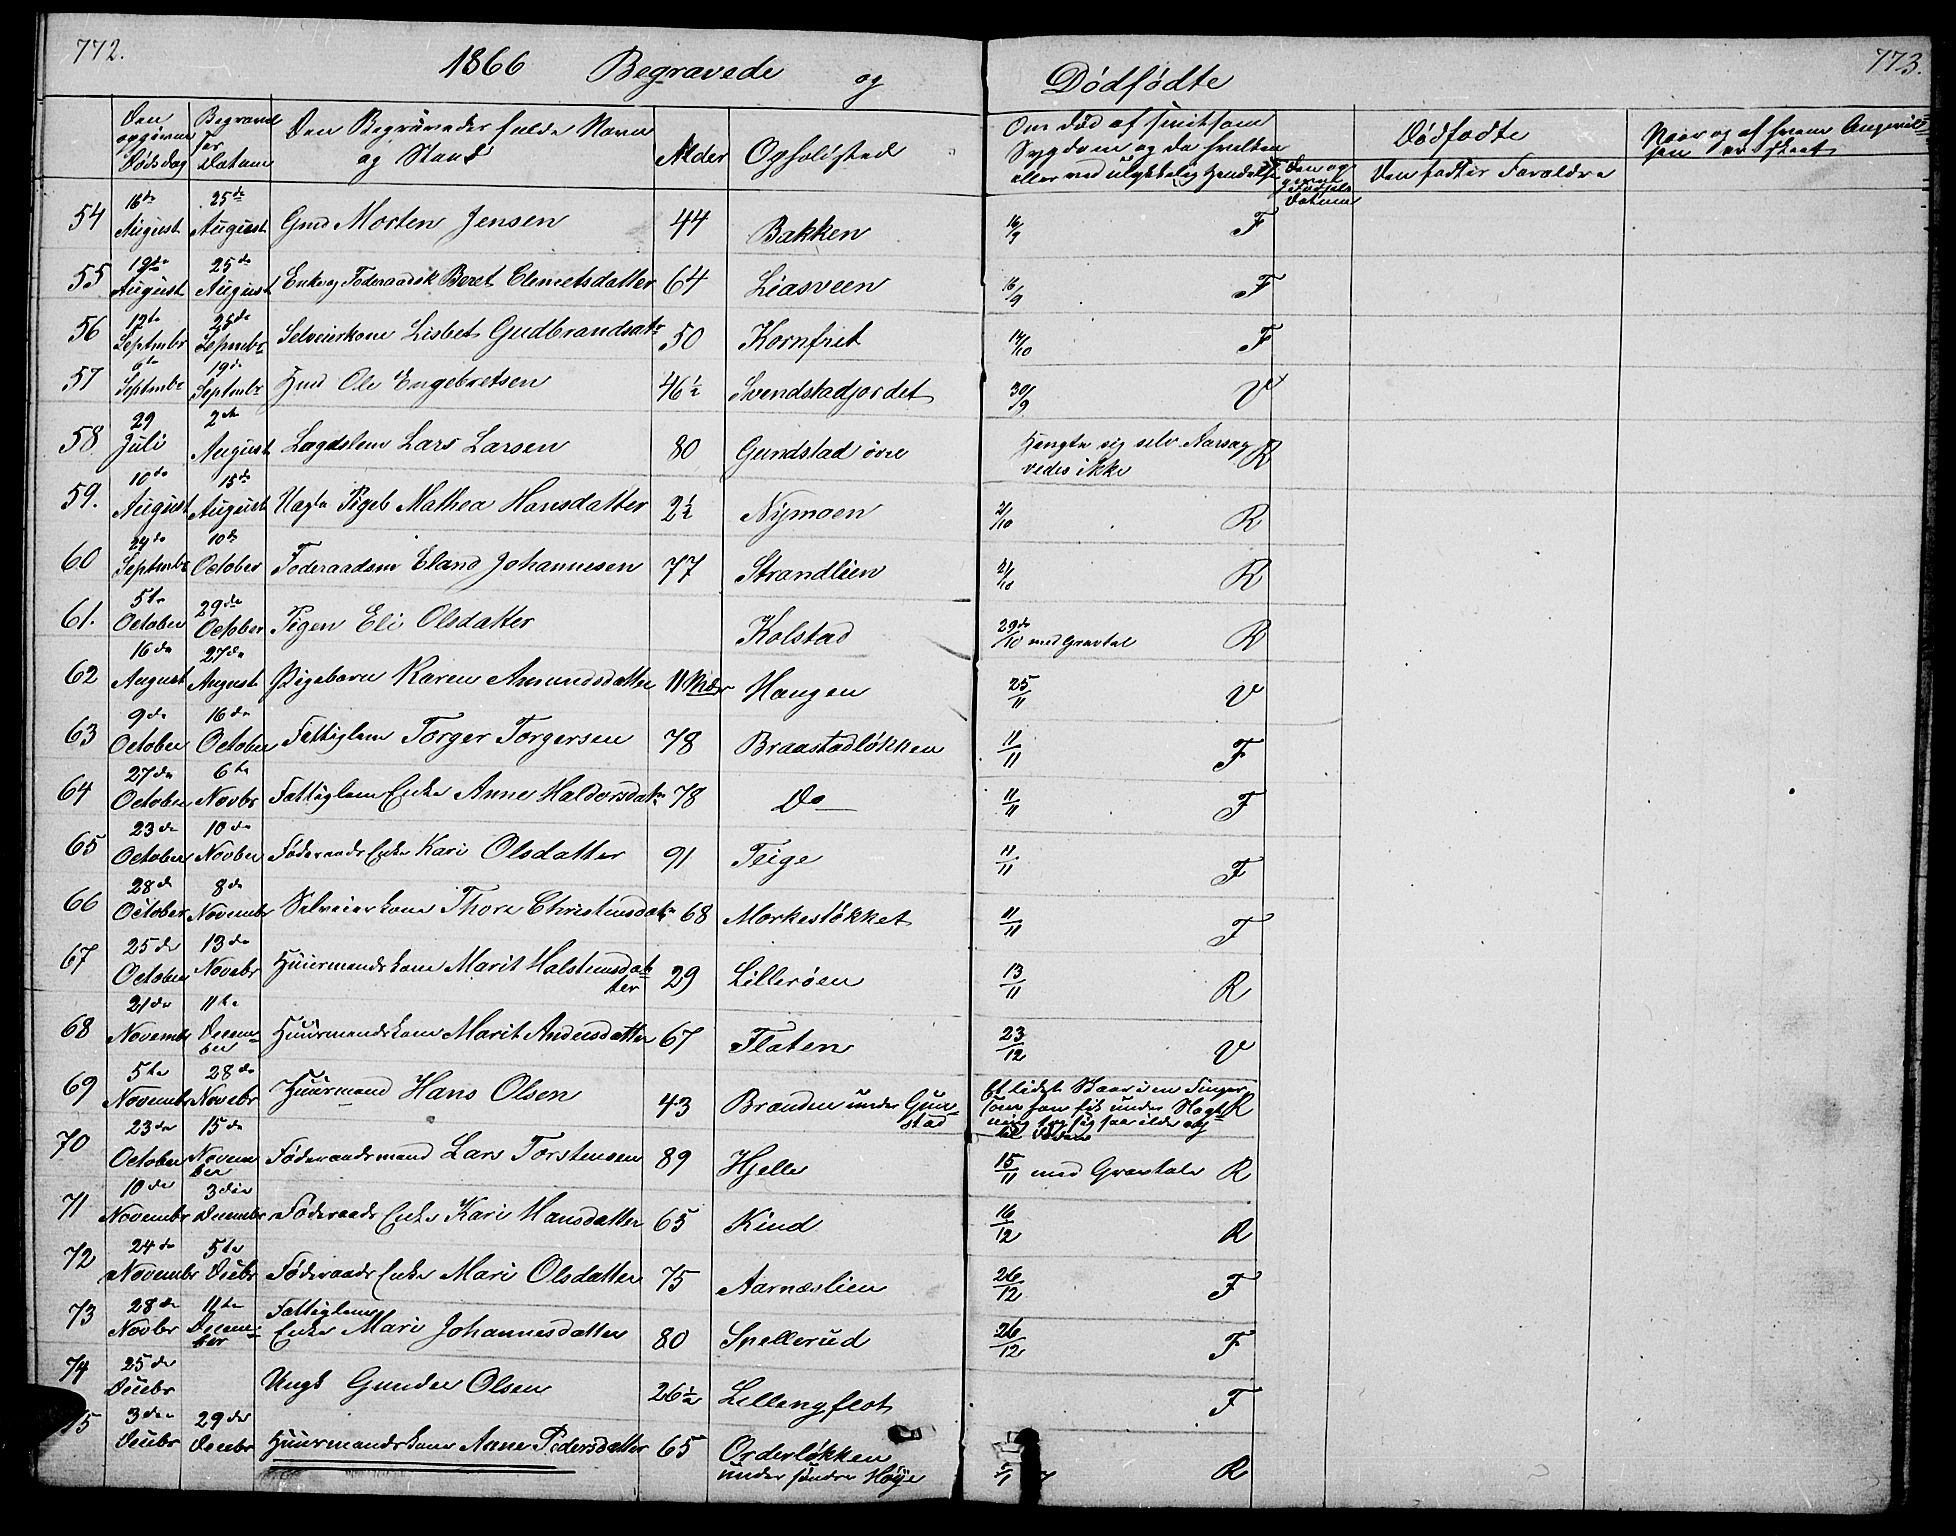 772.
1866 Begravede og Dødfødte
773.
Den opgivne Dødsdag
Begravelses Datum
Den Begravedes fulde Navn og Stand
Alder
Opholdsted
Om død af smitsom Sygdom og da hvilken eller ved ulykkelig Hendelse
Dødfødte
Den fødtes Forældre
54 16de August 25de August Gmd Morten Jensen 44 Bakken 16/9 F
55 19de August 25de August Enke og Føderaadsk Beret Clemetsdatter 64 Liasveen 16/9 F
56 12te Septembr 25de Sepmbr Selveierkone Lisbet Gudbrandsdtr 50 Kornfrit 14/10 F
57 6te Septmbr 19de Septembr Hmd Ole Engebretsen 46½ Svendstadjordet 30/9 V
58 29 Juli 2den August Lægdslem Lars Larsen 80 Gundstad øvre Hængte sig selv Aarsag vides ikke R
59. 10de August 15de August Uægte Pigeb Mathea Hansdatter 2½ Nymoen 2/10 R
60 24de Septmbr 10de October Føderaadsm Eland Johannesen 77 Strandlien 21/10 R
61. 5te October 29de October Pigen Eli Olsdatter Kolstad 29de/10 med Gravtal R
62 16de August 27de August Pigebarn Karen Amundsdatter 11 Mdr Haugen 25/11 V
63 9de October 16de October Fattiglem Torger Torgersen 78 Braastadløkken 11/11 F
64 27de October 6te Novbr Fattiglem Enke Anne Haldorsdatr 78 Do 11/11 F
65 23de October 10de Novber Føderaads Enke Kari Olsdatter 91 Teige 11/11 F
66 28de October 8de Novembr Selveierkone Thore Christensdatr 68 Morkestøkket 11/11 F
67 25de October 13de Novebr Huusmandskone Marit Halstensdatter 29 Lillerøen 13/11 R
68 21de Novembr 11te December Huusmandskone Marit Andersdatter 67 Flaten 23/12 V
69 5te Novembr 28de Novebr Huusmand Hans Olsen 43 Branden under Gunstad Et lidet Skaar i en Finger som han fik under Slagtning tog sig saa ilde og til Døden R
70 23de October 15de November Føderaadsmand Lars Torstensen 89 Hjelle 15/11 med Gravtale R
71 10de Novembr 3die Decembr Føderaads Enke Kari Hansdatter 65 Kind 16/12 R
72 24de Novembr 5te Decbr Føderaads Enke Mari Olsdatter 75 Aarnæslien 26/12 F
73 28de Novbr 11te December Fattiglem Enke Mari Johannesdatter 80 Snellerud 26/12 F
74 25de Decbr Ungk Gunder Olsen 26½ Lillengflot F
75 3die Decbr 29de Decebr Huusmandskone Anne Pedersdatter 65 Orderløkken under søndre Høye R